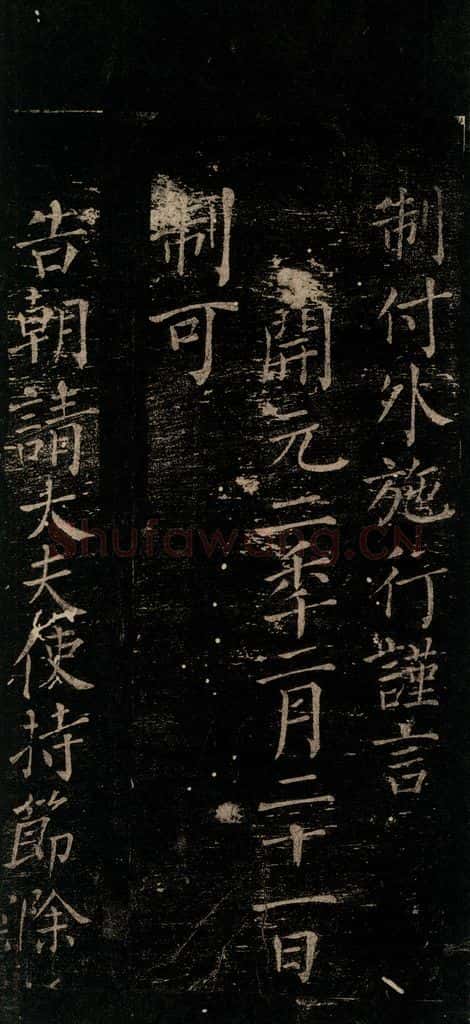 制付外施行謹言
開元二年十二月二十一日
制可
告朝請大夫使持節滁
Shufawang.CN